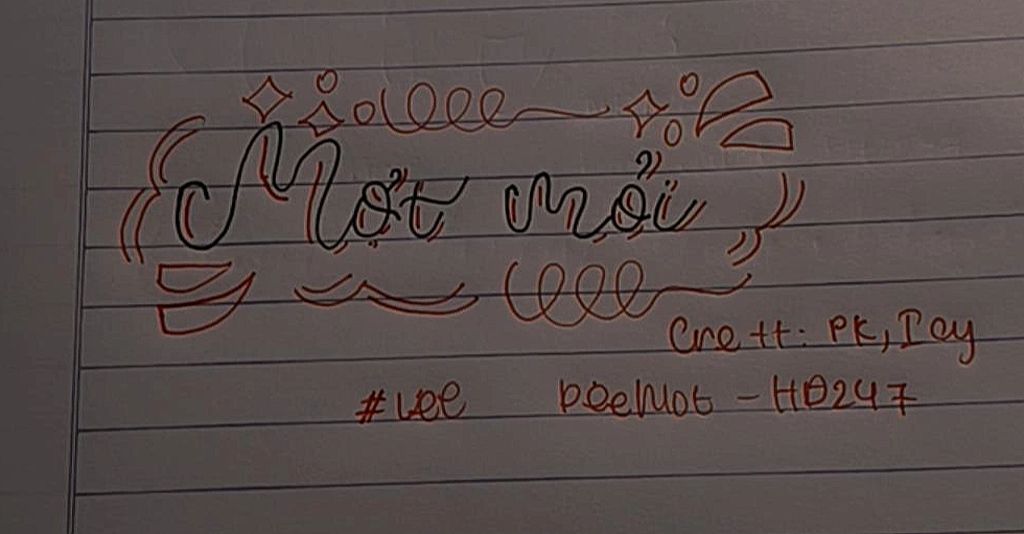 Mệt mỏi
Cre tt: PK,
#Lee beeMot - HD247